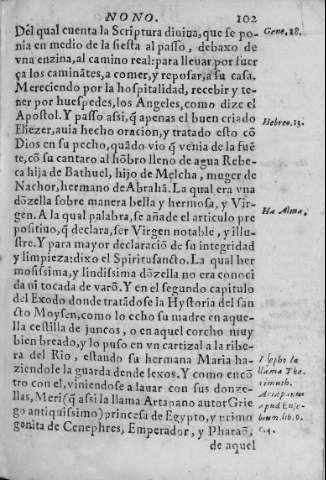 NONO. 102
Del qual cuenta la Scriptura diuina, que se po-
nia en medio de la siesta al passo, debaxo de
vna enzina, al camino real: para lleuar por fuer
ça los caminãtes, a comer, y reposar, a su casa.
Mereciendo por la hospitalidad, recebir y te-
ner por huespedes, los Angeles, como dize el
Apostol. Y passo assi, q̃ apenas el buen criado
Eliezer, auia hecho oracion, y tratado esto cõ
Dios en su pecho, quãdo vio q̃ venia de la fuẽ
te, cõ su cantaro al hõbro lleno de agua Rebe-
ca hija de Bathuel, hijo de Melcha, muger de
Nachor, hermano de Abrahã. La qual era vna
dõzella sobre manera bella y hermosa, y Vir-
gen. A la qual palabra, se añade el articulo pre
positiuo, q̃ declara, ser Virgen notable, y illu-
stre. Y para mayor declaraciõ de su integridad
y limpieza: dixo el Spiritusancto. La qual her
mosissima, y lindissima dõzella no era conoci
da ni tocada de varõ. Y en el segundo capitulo
del Exodo donde tratãdose la Hystoria del san
cto Moysen, como lo echo su madre en aque-
lla cestilla de juncos, o en aquel corcho muy
bien breado, y lo puso en vn cartizal a la ribe-
ra del Rio, estando su hermana Maria ha-
ziendole la guarda dende lexos. Y como encõ
tro con el, viniendose a lauar con sus donze-
llas, Meri (q̃ assi la llama Artapano autor Grie
go antiquissimo) princesa de Egypto, y primo
genita de Cenephres, Emperador, y Pharaõ,
de aquel
Gene. 18.
Hebreo. 13.
Ha Alma.
Iosepho la
llama Tha
rimuth.
Artapano
apud Euse-
bium, lib. 9.
c. 4.